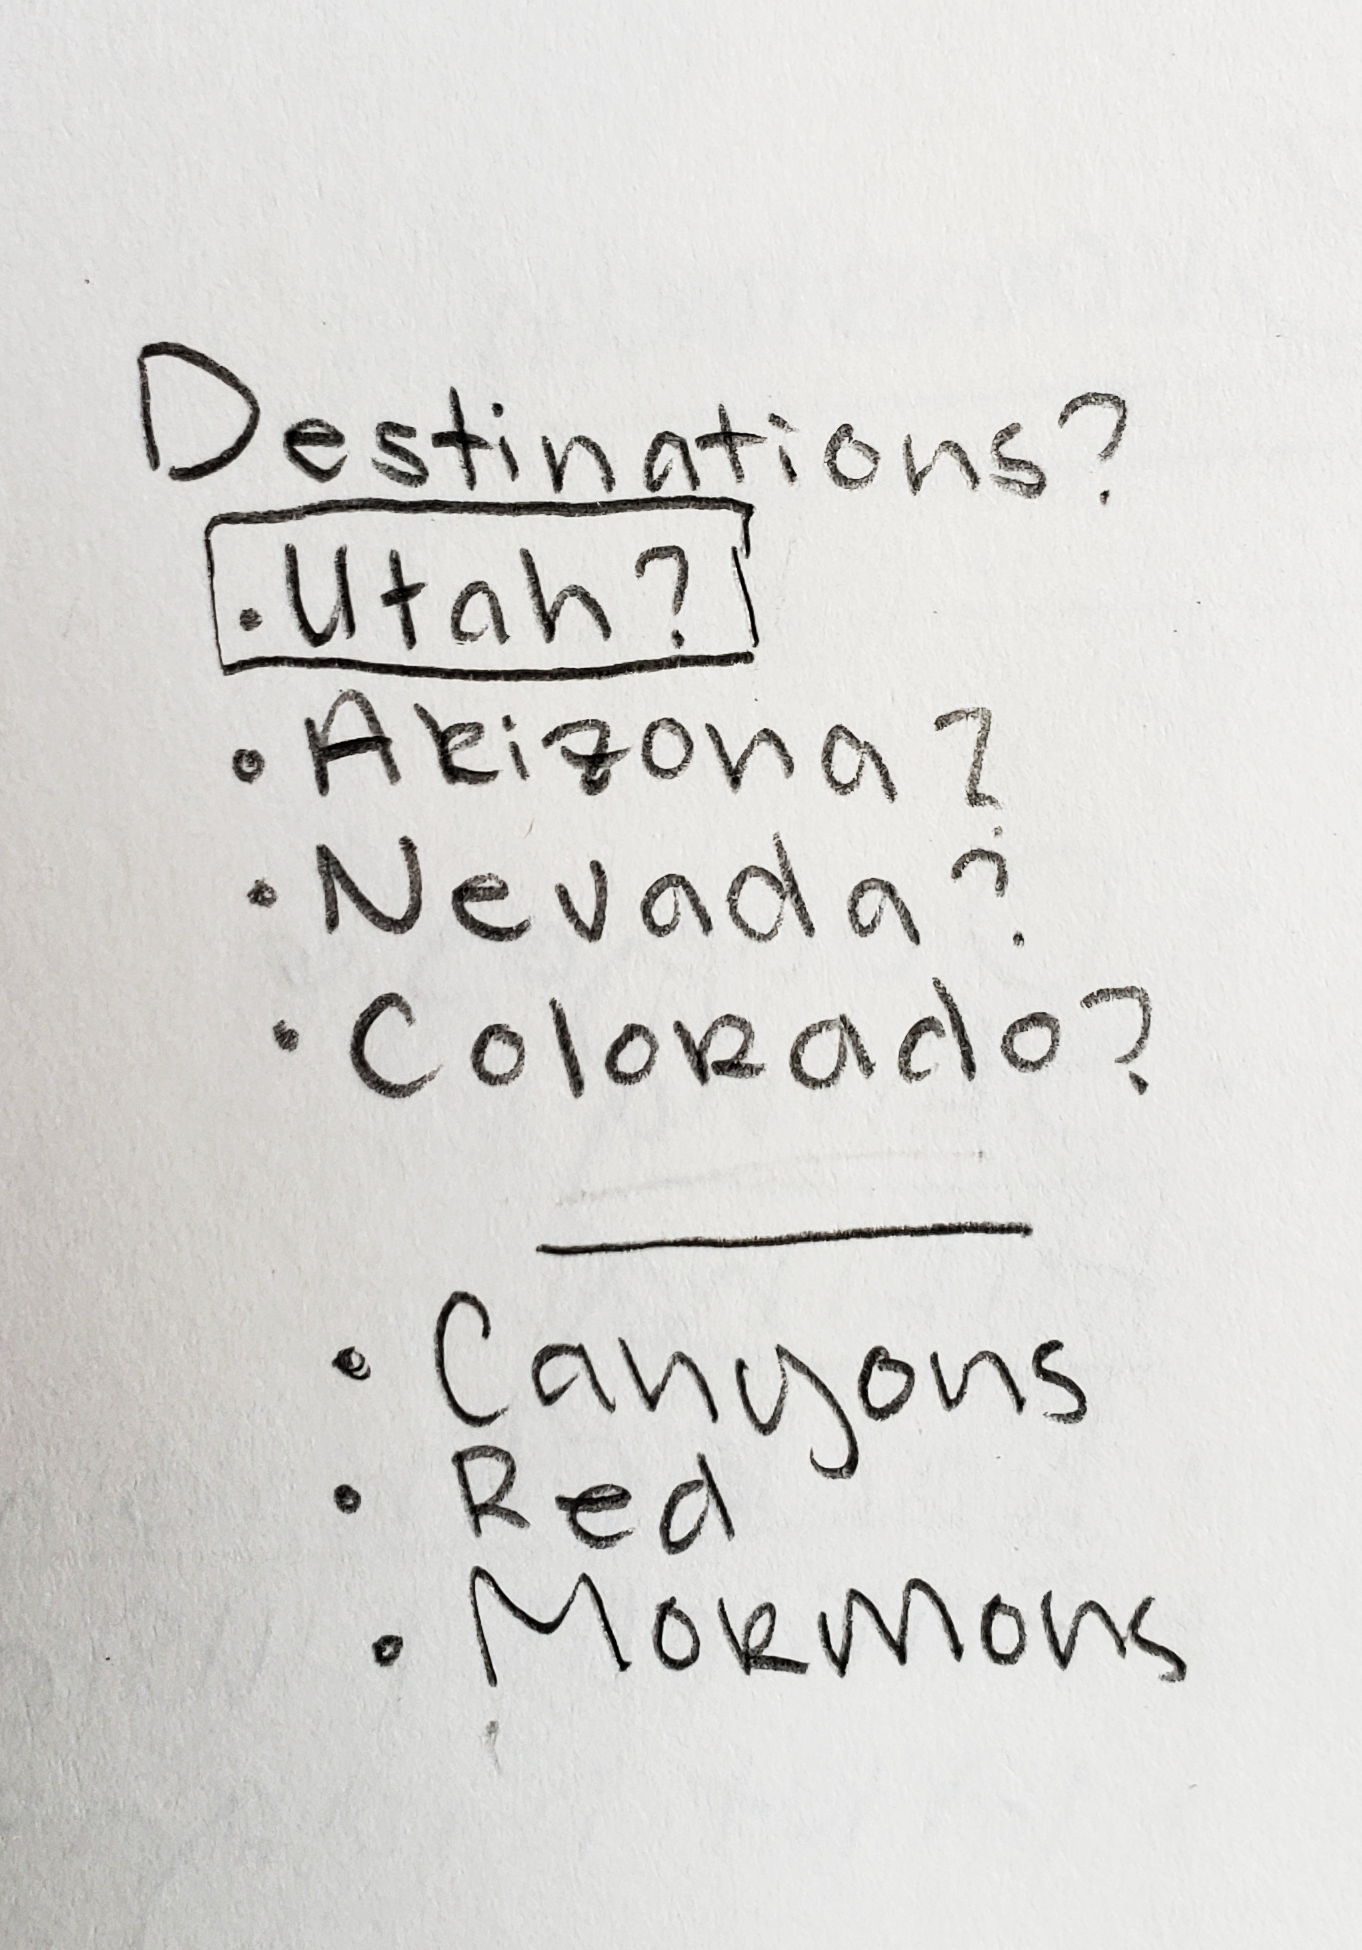 Destinations?
• Utah?
• Arizona?
• Nevada?
• Colorado?
• Canyons
• Red
• Mormons